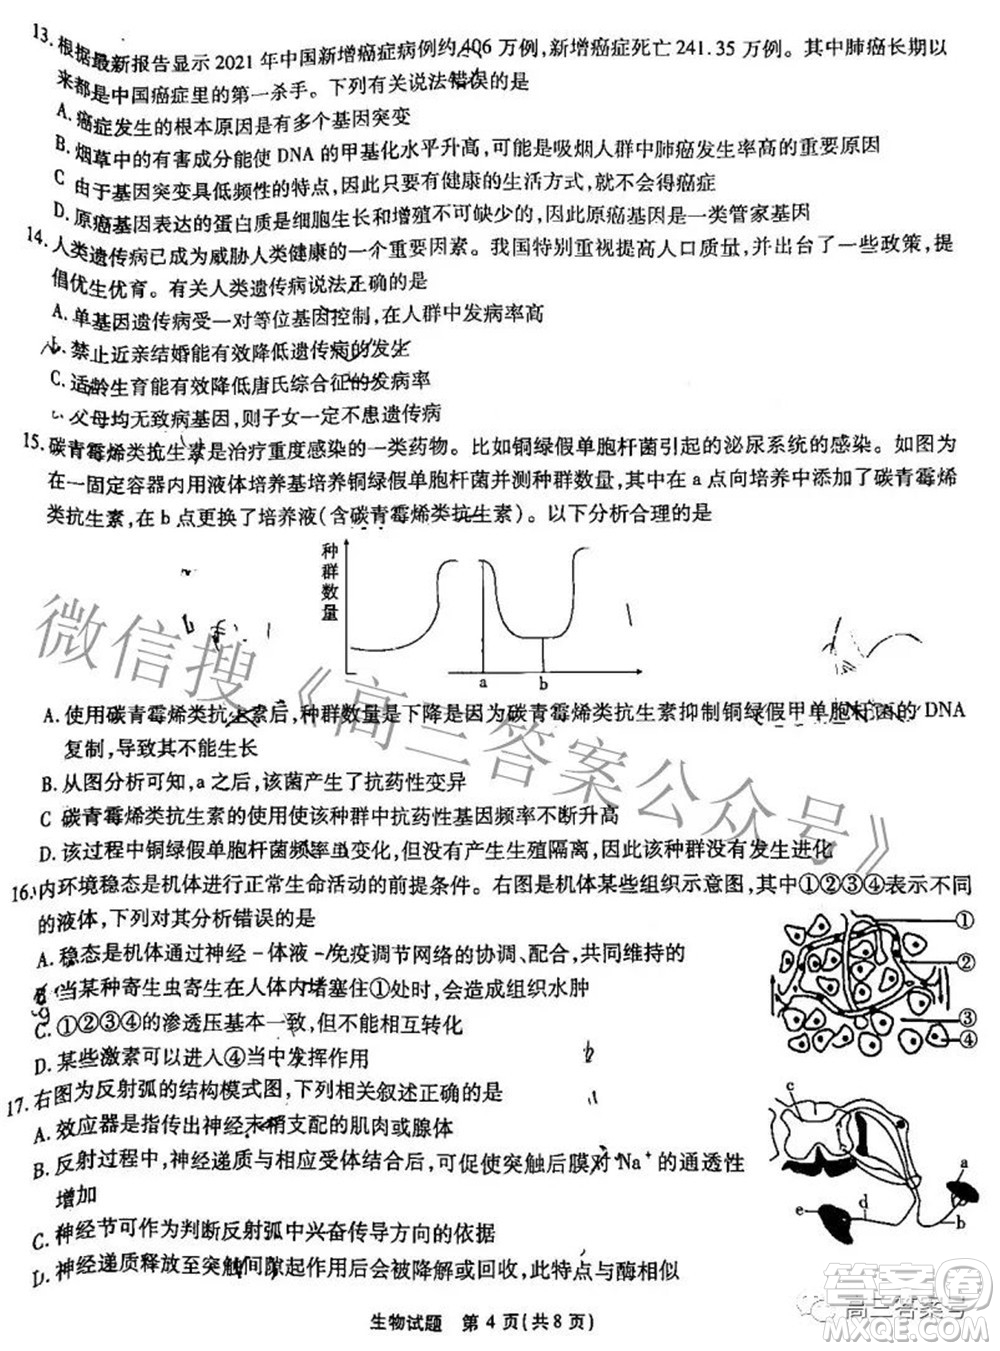 13. 根据最新报告显示 2021 年中国新增癌症病例约 406 万例,新增癌症死亡 241.35 万例。其中肺癌长期以
来都是中国癌症里的第一杀手。下列有关说法错误的是
A. 癌症发生的根本原因是有多个基因突变
B. 烟草中的有害成分能使 DNA 的甲基化水平升高,可能是吸烟人群中肺癌发生率高的重要原因
C 由于基因突变具低频性的特点,因此只有健康的生活方式,就不易得癌症
D. 原癌基因表达的蛋白质是细胞生长和增殖不可缺少的,因此原癌基因是一类管家基因
14. 人类遗传病已成为威胁人类健康的一个重要因素。我国特别重视提高人口质量,并出台了一些政策,提
倡优生优育。有关人类遗传病说法正确的是
A. 单基因遗传病受一对等位基因控制,在人群中发病率高
B. 禁止近亲结婚能有效降低遗传病的发生
C. 适龄生育能有效降低唐氏综合征的发病率
父母均无致病基因,则子女一定不患遗传病
15. 碳青霉烯类抗生素是治疗重度感染的一类药物。比如铜绿假单胞杆菌引起的泌尿系统的感染。如图为
在一固定容器内用液体培养基培养铜绿假单胞杆菌并测种群数量,在 a 点向培养中添加了碳青霉烯
类抗生素,在 b 点更换了培养液(含碳青霉烯类抗生素)。以下分析合理的是
种群数量
a b
A. 使用碳青霉烯类抗生素后,种群数量是下降是因为碳青霉烯类抗生素抑制铜绿假甲单胞杆菌的 DNA
复制,导致其不能生长
B. 从图分析可知,a 之后,该菌产生了抗药性变异
C 碳青霉烯类抗生素的使用使该种群中抗药性基因频率不断升高
D. 该过程中铜绿假单胞杆菌频率虽变化,但没有产生生殖隔离,因此该种群没有发生进化
16. 内环境稳态是机体进行正常生命活动的前提条件。右图是机体某些组织示意图,其中①②③④表示不同
的液体,下列对其分析错误的是
A. 稳态是机体通过神经－体液－免疫调节网络的协调、配合,共同维持的
当某种寄生虫寄生在人体内堵塞住①处时,会造成组织水肿
C. ①②③④的渗透压基本一致,但不能相互转化
D. 某些激素可以进入④当中发挥作用
①
②
③
④
17. 右图为反射弧的结构模式图,下列相关叙述正确的是
A. 效应器是指传出神经末梢支配的肌肉或腺体
B. 反射过程中,神经递质与相应受体结合后,可促使突触后膜对 Na⁺ 的通透性
增加
C. 神经节可作为判断反射弧中兴奋传导方向的依据
D. 神经递质释放至突触间隙起作用后会被降解或回收,此特点与酶相似
c
a
e d
b
生物试题 第 4 页(共 8 页)
微信搜《高三答案公众号》
高三答案号
答案圈
MXQE.COM